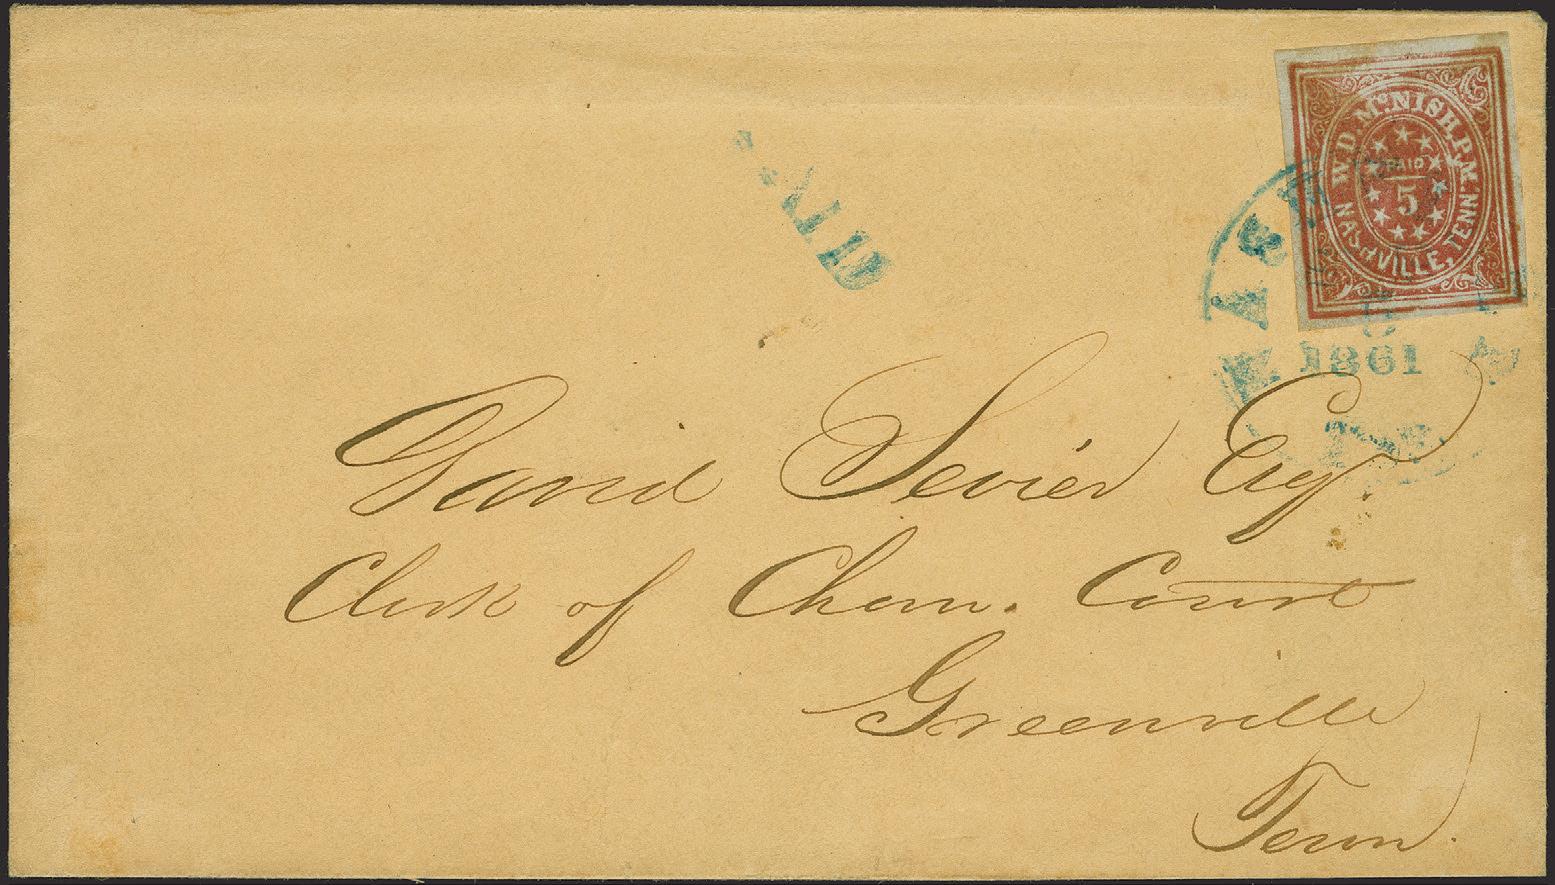 W.D. McNISH. P.M.
PAID
5
NASHVILLE, TENN.
PAID
NASH
1861
David Sevier Esq.
Clerk of Chan. Court
Greenville
Tenn.